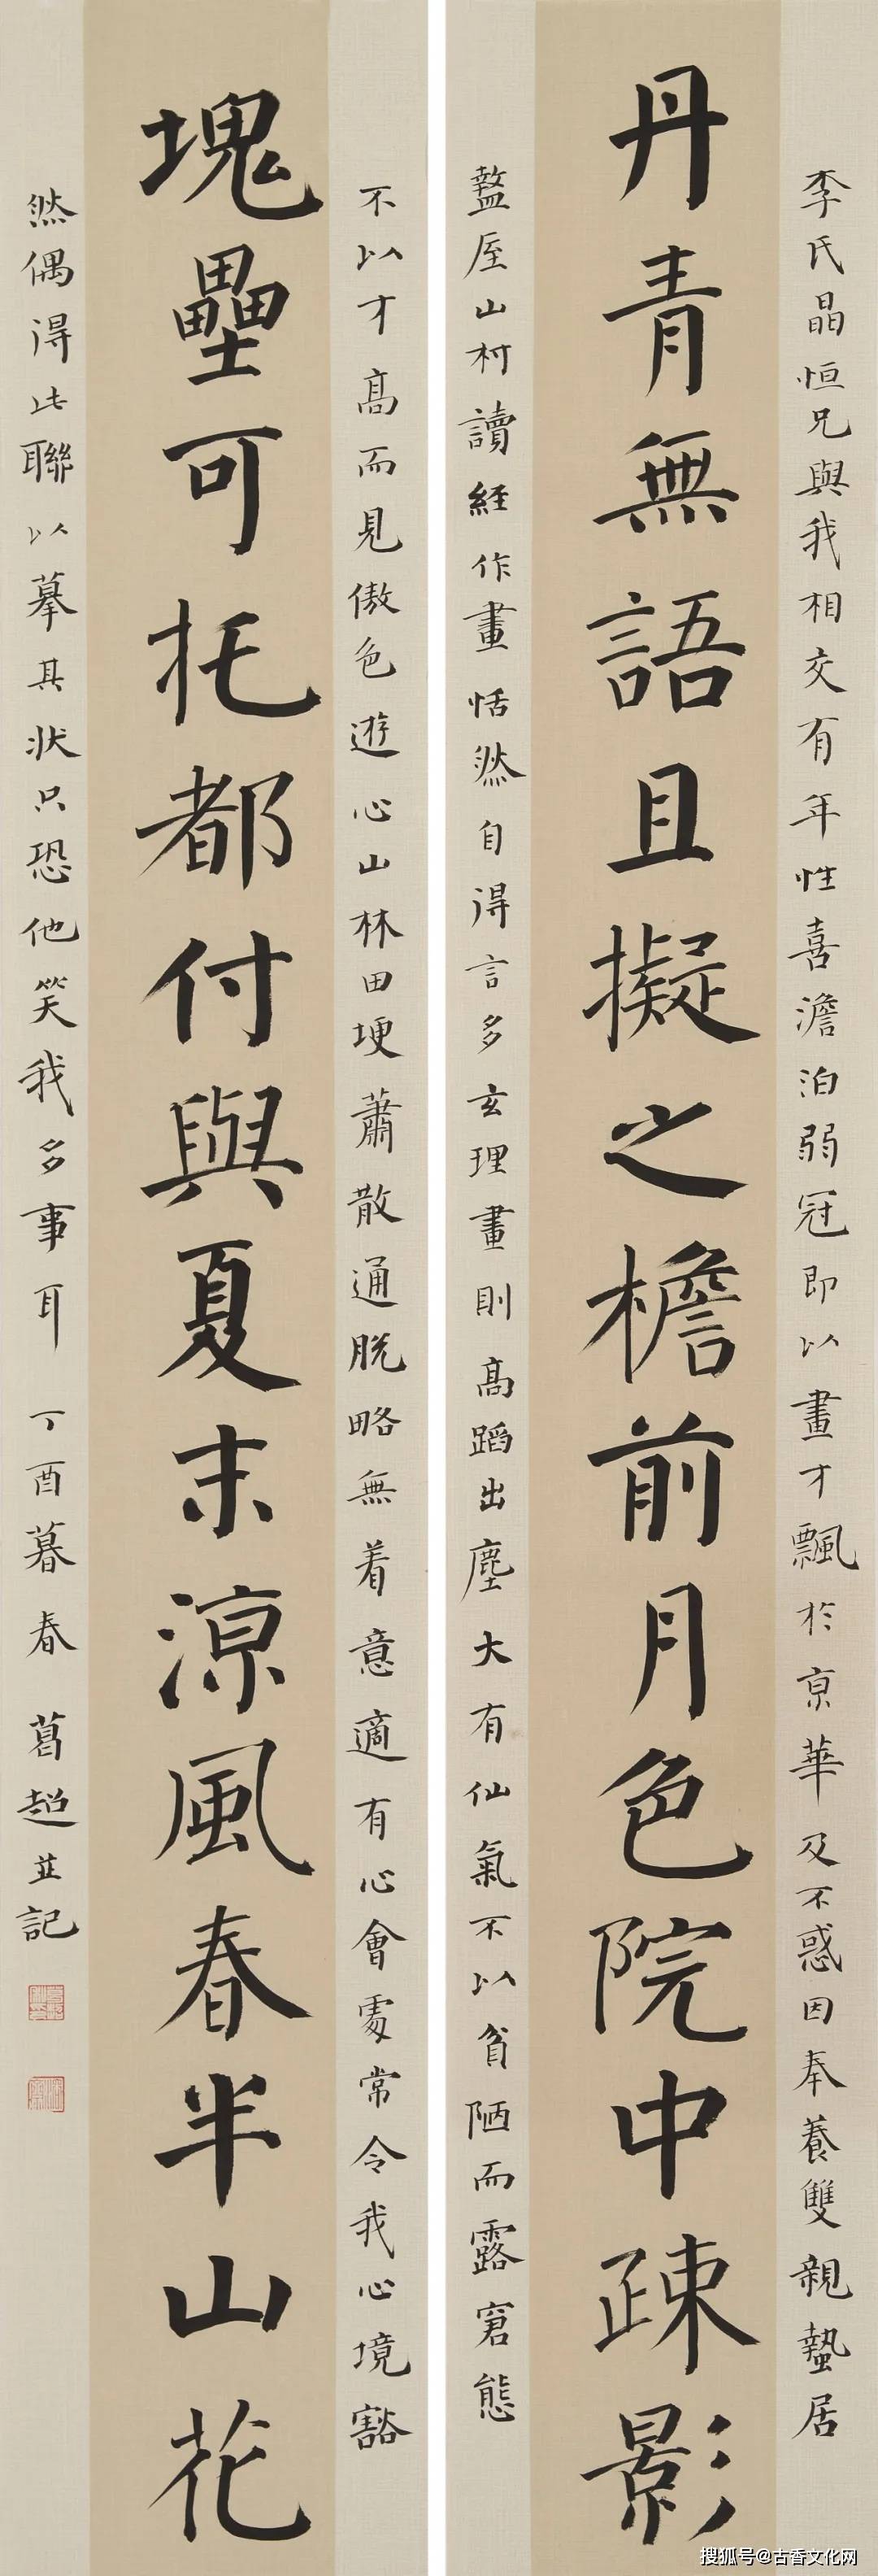 李氏晶恒兄與我相交有年性喜澹泊弱冠即以畫才飄於京華及不惑因奉養雙親蟄居
丹青無語且擬之檐前月色院中疎影
盩厔山村讀経作畫恬然自得言多玄理畫則高蹈出塵大有仙氣不以貧陋而露窘態
不以才高而見傲色遊心山林田埂蕭散通脫略無着意適有心會處常令我心境豁
塊壘可托都付與夏末涼風春半山花
然偶得此聯以摹其狀只恐他笑我多事耳 丁酉暮春 葛超並記
搜狐号@古香文化网